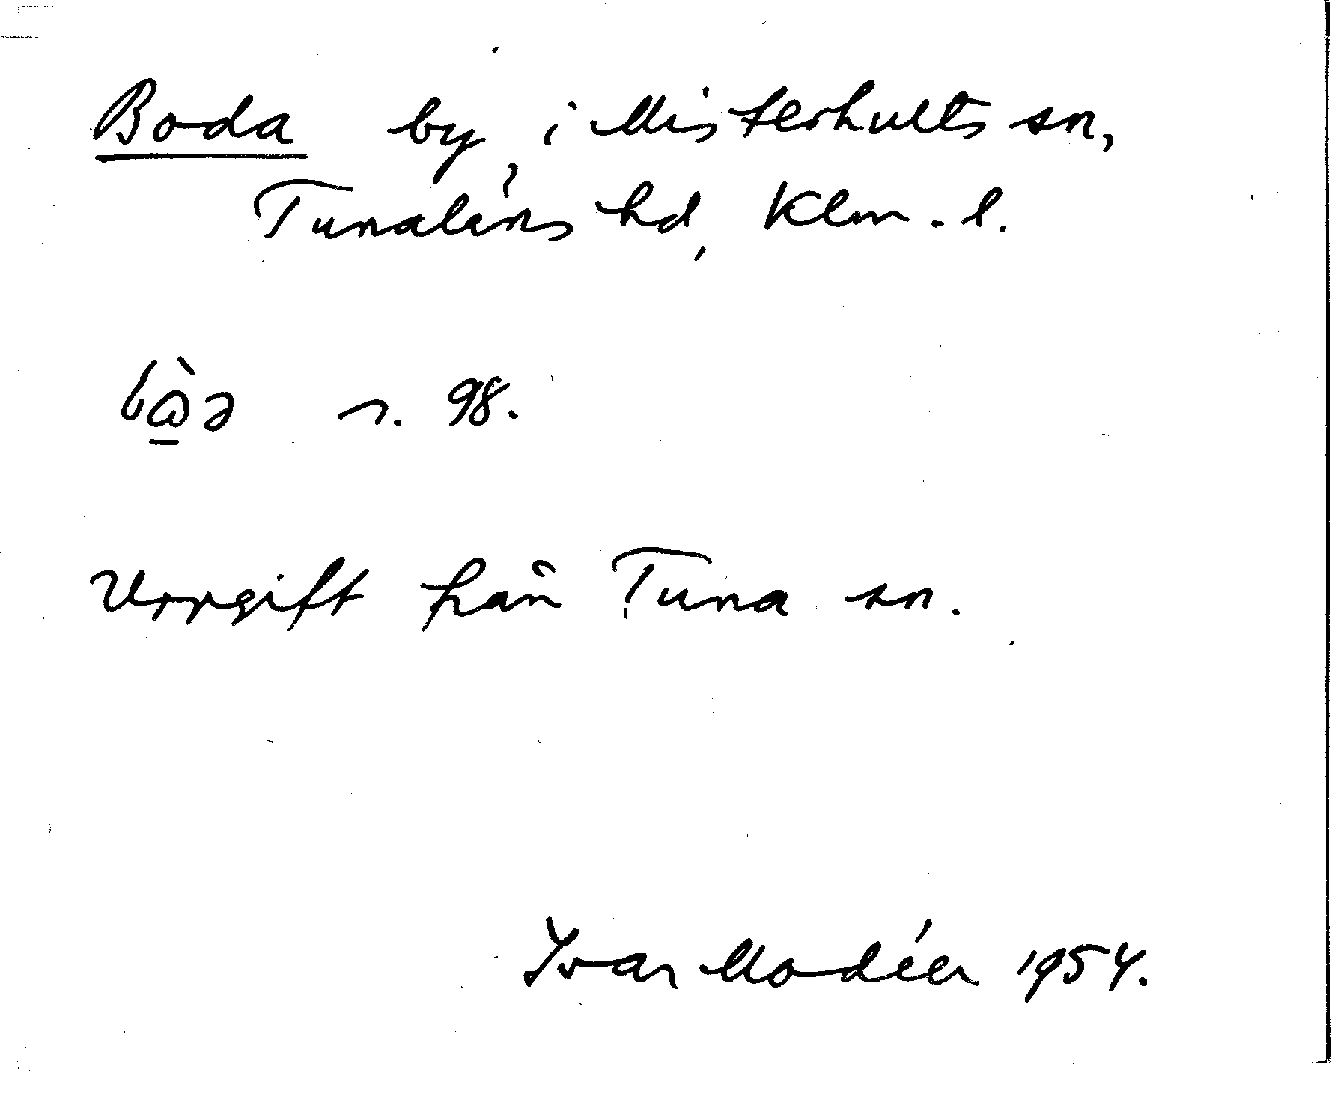 Boda by, i Misterhults sn,
Tunaläns hd, Klm. l.
s. 98.
Uppgift från Tuna sn.
Ivar Modéer 1954.